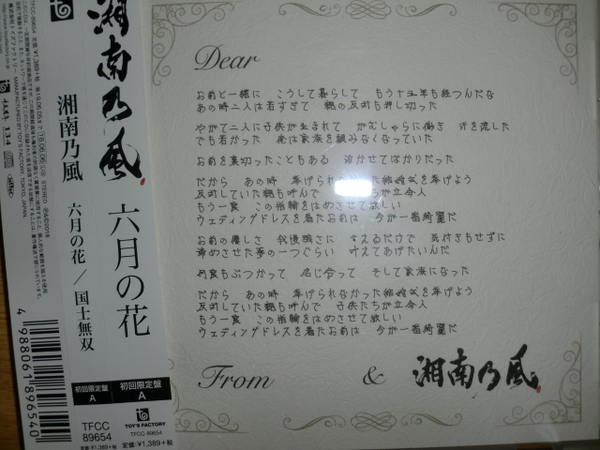 湘南乃風
六月の花
湘南乃風 六月の花／国士無双
初回限定盤
A
初回限定盤
A
TFCC
89654
定価:¥1,389+税
TOY'S FACTORY
TFCC-89654
定価:¥1,389+税
4 988061 896540
Dear
お前と一緒に こうして暮らして もう十五年も経つんだな
あの時二人は若すぎて 親の反対も押し切った
やがて二人に子供が生まれて がむしゃらに働き 汗を流した
でも若かった 俺は家族を顧みなくなっていた
お前を裏切ったこともある 泣かせてばかりだった
だから あの時 挙げられなかった結婚式を挙げよう
反対していた親も呼んで 子供たちが立会人
もう一度 この指輪をはめさせて欲しい
ウェディングドレスを着たお前は 今が一番綺麗だ
お前の優しさ 我慢強さに 甘えるだけで 気付きもせずに
諦めさせた夢の一つぐらい 叶えてあげたいんだ
何度もぶつかって 名じ合って そして家族になった
だから あの時 挙げられなかった結婚式を挙げよう
反対していた親も呼んで 子供たちが立会人
もう一度 この指輪をはめさせて欲しい
ウェディングドレスを着たお前は 今が一番綺麗だ
From & 湘南乃風